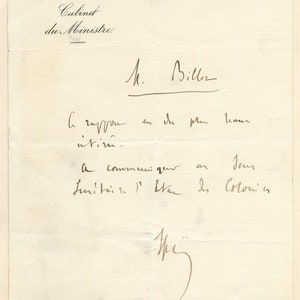 Cabinet
du Ministre
M. Billot
Ce rapport est du plus haut
intérêt.
A communiquer au Sous
Secrétaire d'Etat des Colonies